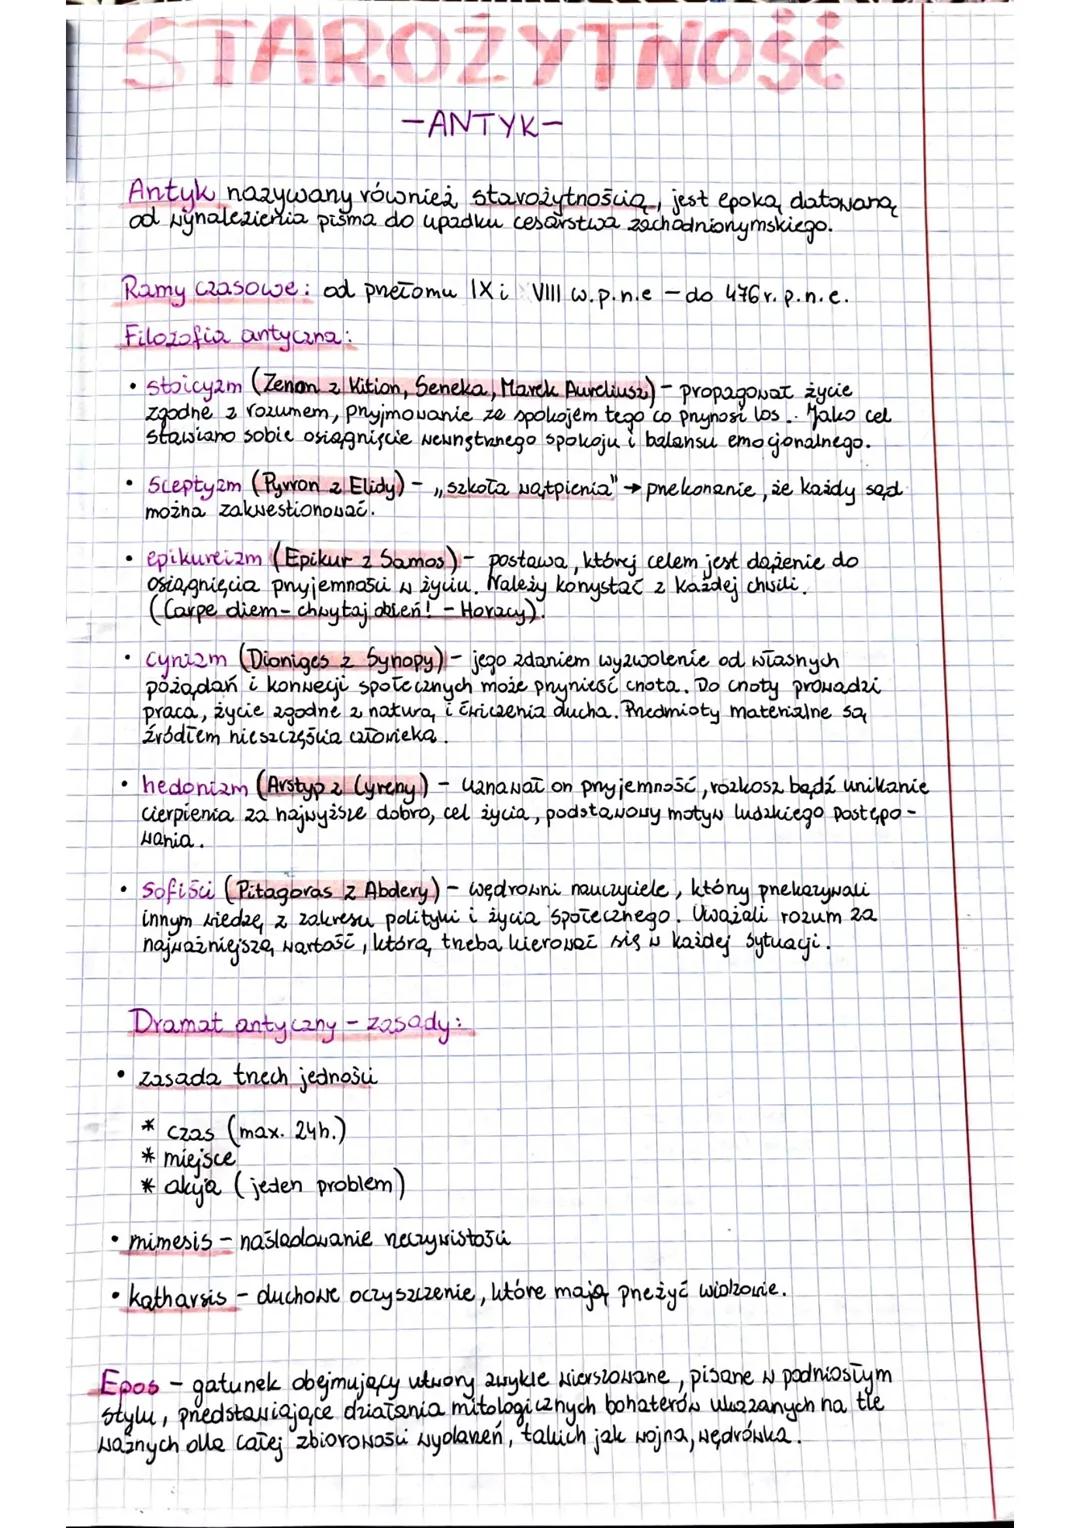 STAROŻYTNOŚĆ
-ANTYK-
Antyk, nazywany również starożytnością, jest epoką datowaną
od wynalezienia pisma do upadku cesarstwa zachodniorzymskiego.
Ramy czasowe: od przełomu IX i VIII w.p.n.e - do 476r. p.n.e.
Filozofia antyczna:
• stoicyzm (Zenon z Kition, Seneka, Marek Aureliusz) - propagował życie
zgodne z rozumem, przyjmowanie ze spokojem tego co przynosi los. Jako cel
stawiano sobie osiągnięcie wewnętrznego spokoju i balansu emocjonalnego.
• Sceptyzm (Pyrron z Elidy) - „szkoła wątpienia" → przekonanie, że każdy sąd
można zakwestionować.
• epikureizm (Epikur z Samos) - postawa, której celem jest dążenie do
osiągnięcia przyjemności w życiu. Należy korzystać z każdej chwili.
(Carpe diem - chwytaj dzień! - Horacy).
• cynizm (Dioniges z Synopy) - jego zdaniem wyzwolenie od własnych
pożądań i konwecji społecznych może przynieść cnota. Do cnoty prowadzi
praca, życie zgodne z naturą i ćwiczenia ducha. Przedmioty materialne są
źródłem nieszczęścia człowieka.
• hedonizm (Arstyp z Cyreny) - uznawał on przyjemność, rozkosz bądź unikanie
cierpienia za najwyższe dobro, cel życia, podstawowy motyw ludzkiego postępo-
wania.
• Sofiści (Pitagoras z Abdery) - wędrowni nauczyciele, którzy przekazywali
innym wiedzę z zakresu polityki i życia społecznego. Uważali rozum za
najważniejszą wartość, którą trzeba kierować się w każdej sytuacji.
Dramat antyczny - zasady:
• zasada trzech jedności
* czas (max. 24h.)
* miejsce
* akcja (jeden problem)
• mimesis - naśladowanie rzeczywistości
• katharsis - duchowe oczyszczenie, które mają przeżyć widzowie.
Epos - gatunek obejmujący utwory zwykle wierszowane, pisane w podniosłym
stylu, przedstawiające działania mitologicznych bohaterów ukazanych na tle
ważnych dla całej zbiorowości wydarzeń, takich jak wojna, wędrówka.